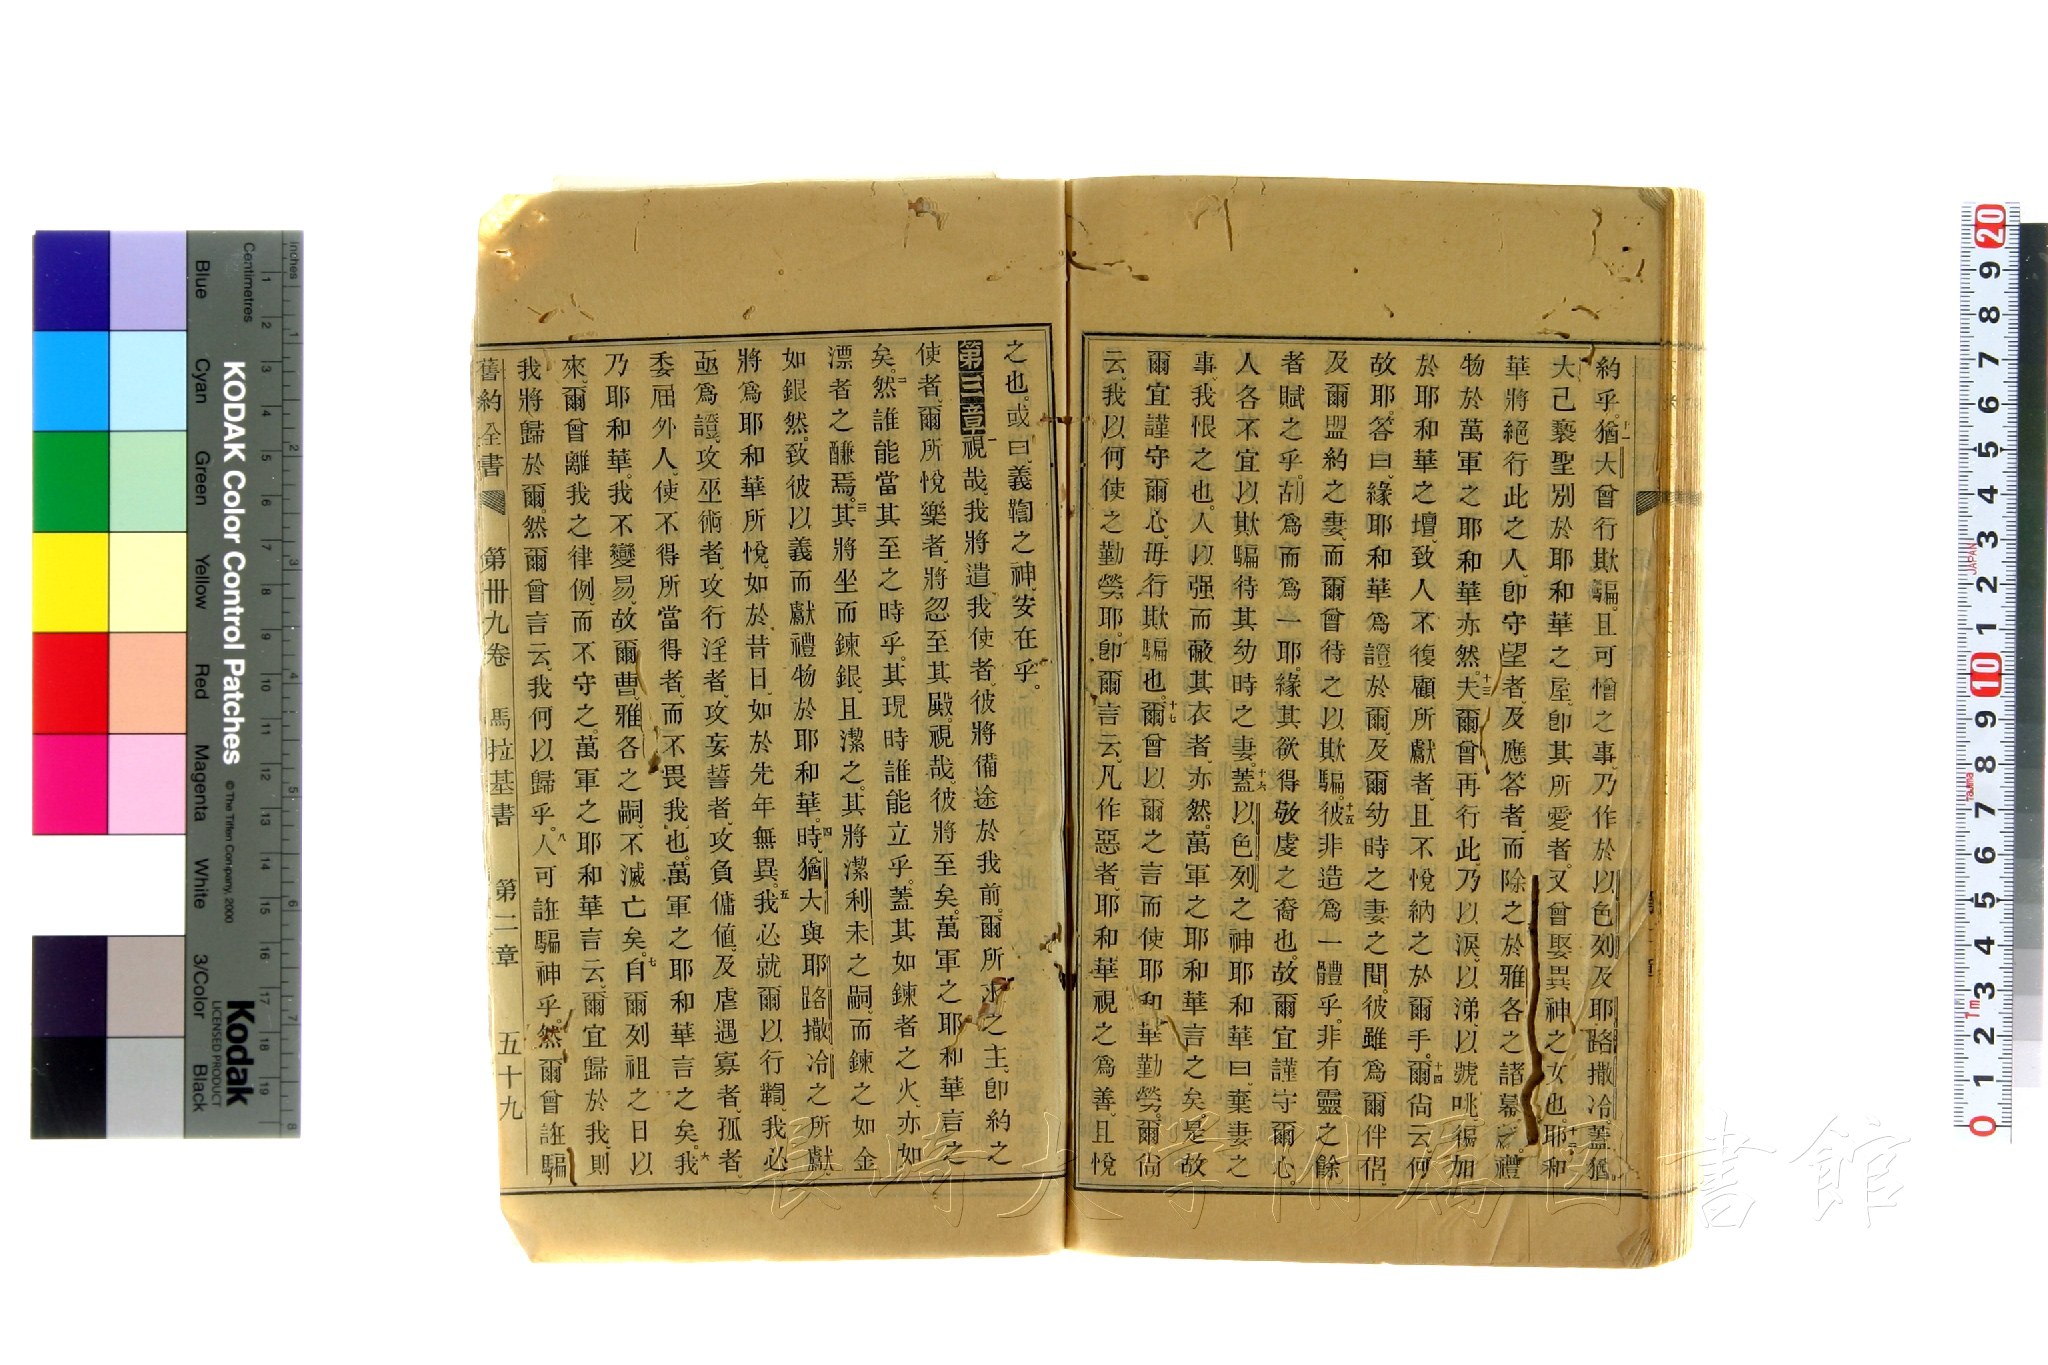 約乎。十一猶大曾行欺騙。且可憎之事、乃作於以色列及耶路撒冷。蓋猶
大已褻聖別於耶和華之屋、卽其所愛者。又曾娶異神之女也。十二耶和
華將絕行此之人、卽守望者、及應答者、而除之於雅各之諸幕。禮
物於萬軍之耶和華亦然。十三夫爾曾再行此、乃以淚、以涕、以號咷、徧如
於耶和華之壇、致人不復顧所獻者、且不悅納之於爾手。十四爾尙云、何
故耶。答曰、緣耶和華爲證於爾、及爾幼時之妻之間。彼雖爲爾伴侶、
及爾盟約之妻、而爾曾待之以欺騙。十五彼非造爲一體乎。非有靈之餘
者賦之乎。胡爲而爲一耶。緣其欲得敬虔之裔也。故爾宜謹守爾心。
人各不宜以欺騙待其幼時之妻。十六蓋以色列之神耶和華曰、棄妻之
事、我恨之也。人以强而蔽其衣者、亦然。萬軍之耶和華言之矣。是故
爾宜謹守爾心、毋行欺騙也。十七爾曾以爾之言而使耶和華勤勞。爾尙
云、我以何使之勤勞耶。卽爾言云、凡作惡者、耶和華視之爲善、且悅
之也。或曰、義鞫之神、安在乎。
第三章 一視哉、我將遣我使者、彼將備途於我前。爾所求之主、卽約之
使者、爾所悅樂者、將忽至其殿。視哉、彼將至矣。萬軍之耶和華言之
矣。二然誰能當其至之時乎。其現時誰能立乎。蓋其如鍊者之火、亦如
漂者之鹻焉。三其將坐而鍊銀、且潔之。其將潔利未之嗣、而鍊之如金
如銀然。致彼以義而獻禮物於耶和華。四時、猶大與耶路撒冷之所獻、
將爲耶和華所悅、如於昔日、如於先年無異。五我必就爾以行鞫、我必
亟爲證、攻巫術者、攻行淫者、攻妄誓者、攻負傭值、及虐遇寡者、孤者、
委屈外人、使不得所當得者、而不畏我也。萬軍之耶和華言之矣。六我
乃耶和華。我不變易。故爾曹、雅各之嗣、不滅亡矣。七自爾列祖之日以
來、爾曾離我之律例、而不守之。萬軍之耶和華言云、爾宜歸於我、則
我將歸於爾。然爾曾言云、我何以歸乎。八人可誑騙神乎。然爾曾誑騙
舊約全書 第卅九卷 馬拉基書 第二章 五十九
inches
Centimetres
KODAK Color Control Patches
© The Tiffen Company, 2000
Kodak
LICENSED PRODUCT
Blue Cyan Green Yellow Red Magenta White 3/Color Black
JAPAN
長崎大学附属図書館